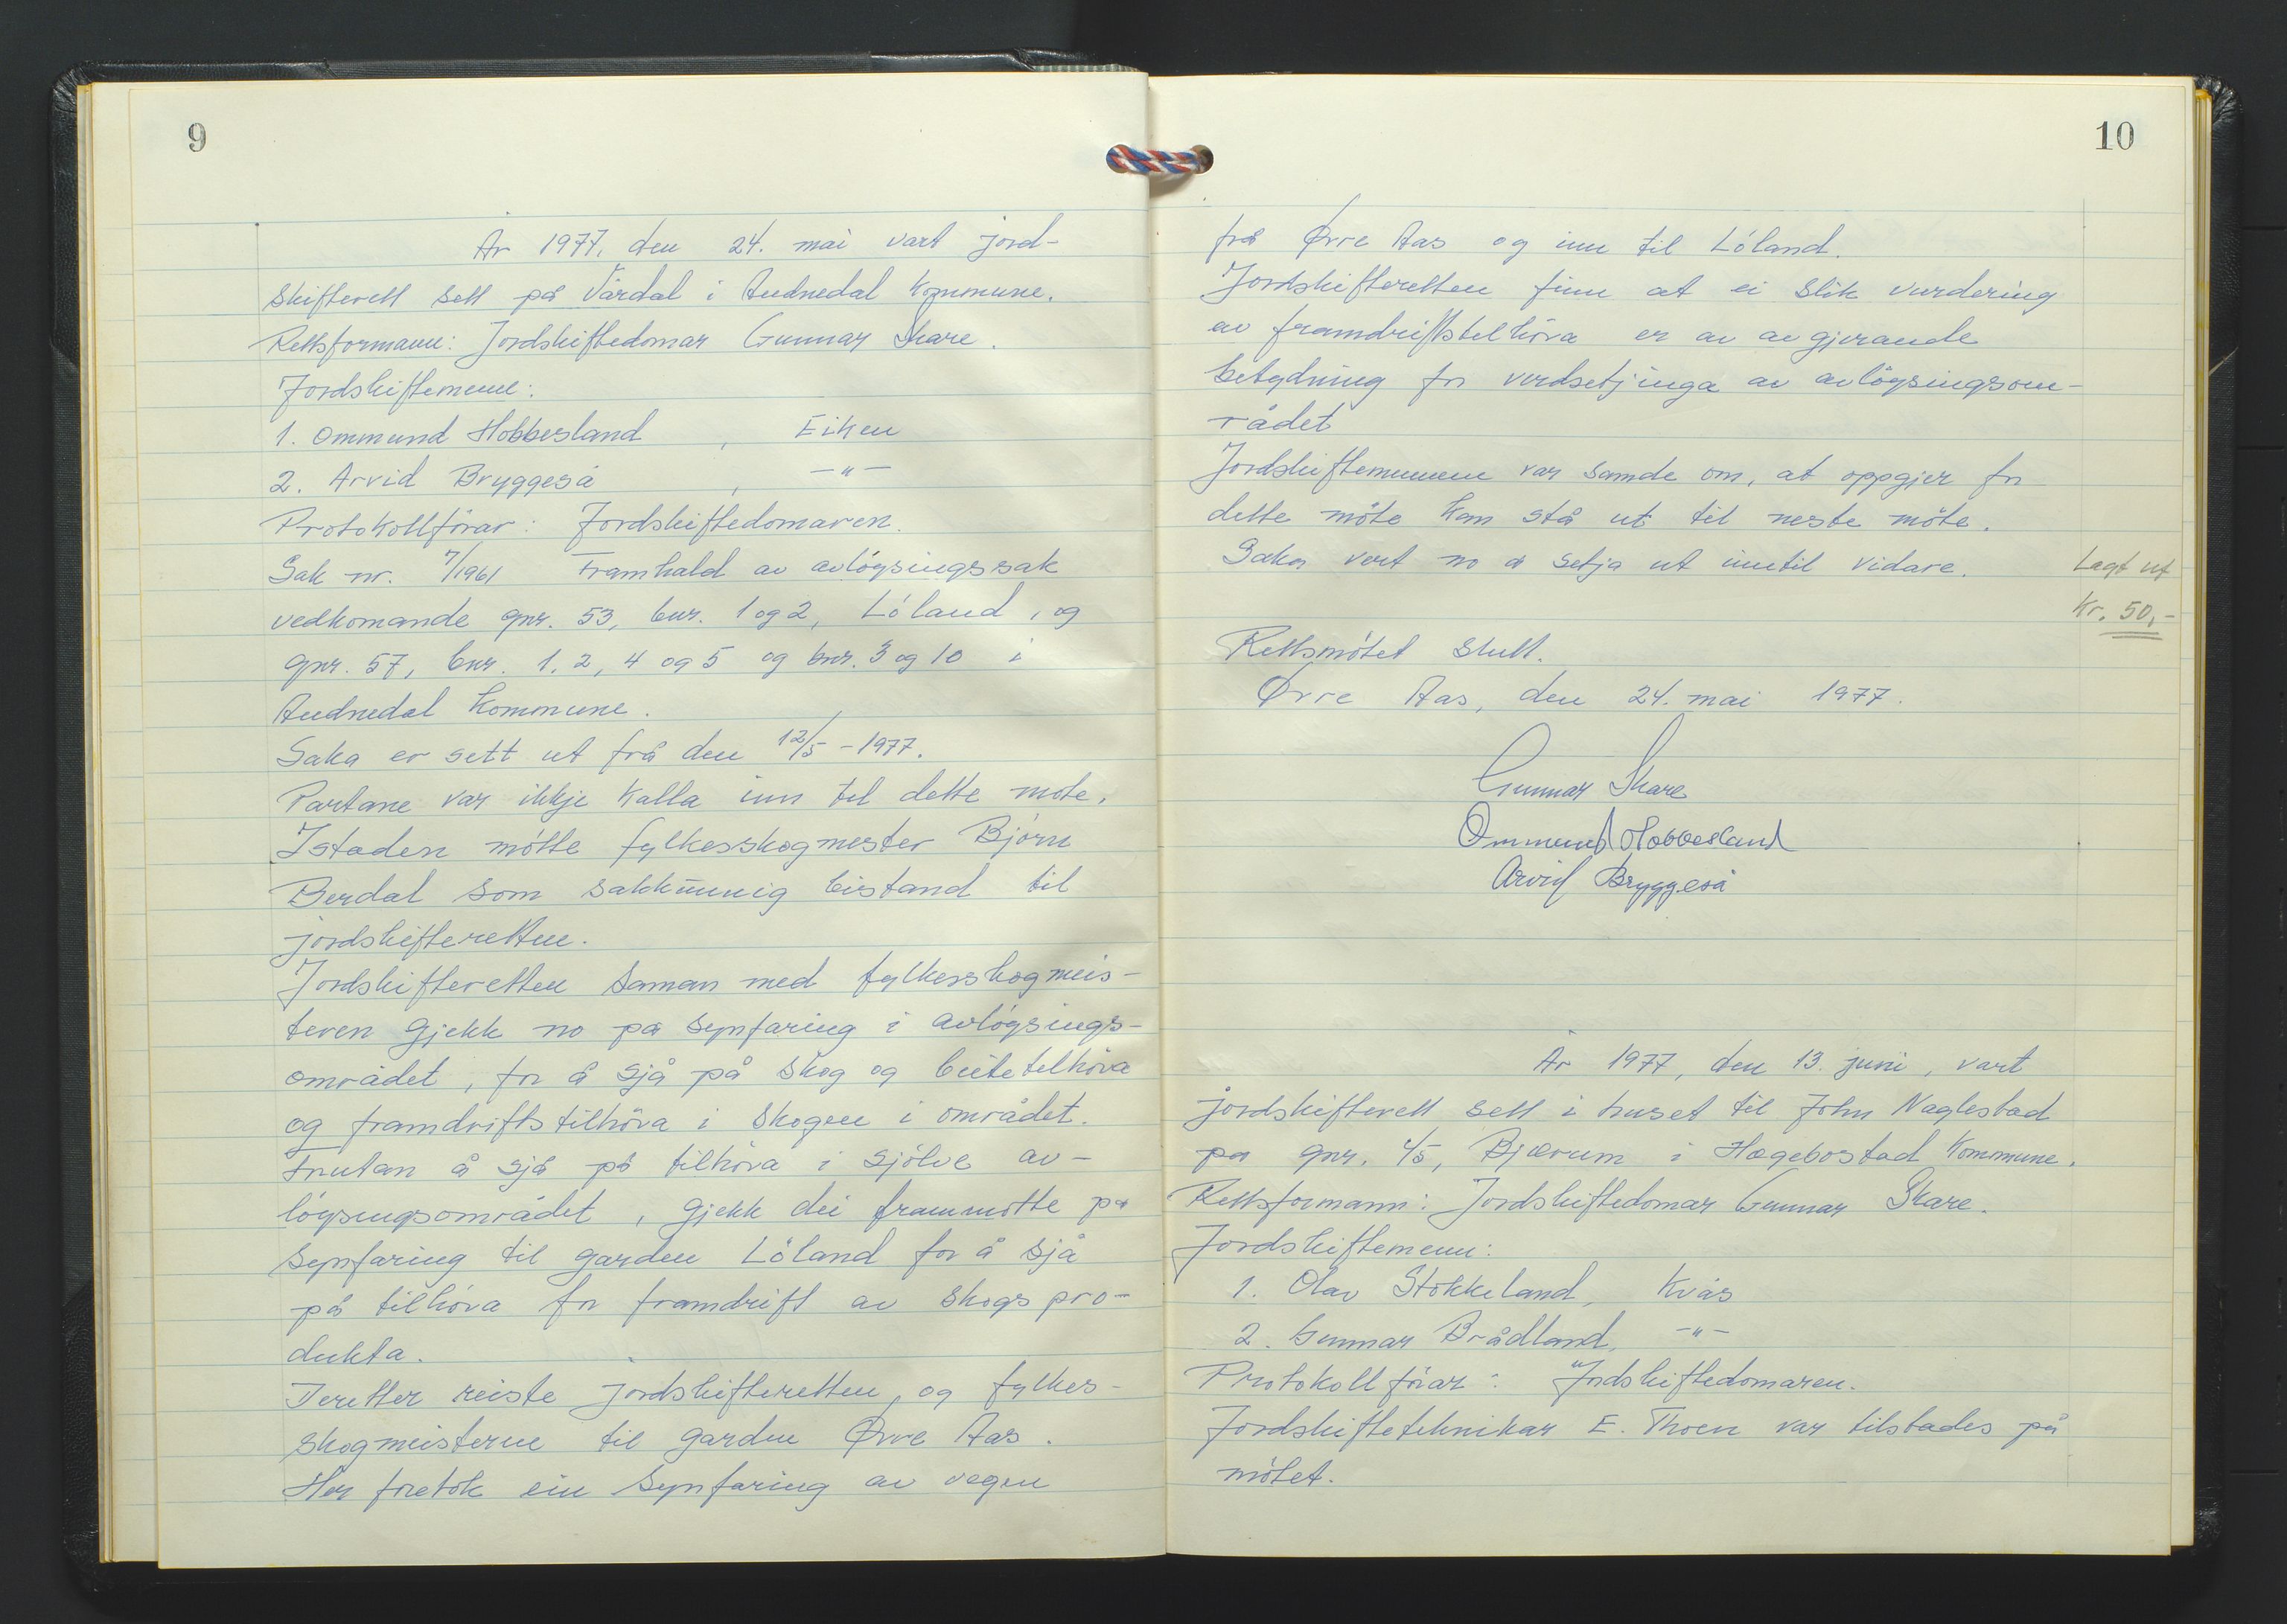 9
År 1977, den 24. mai vart jord-
skifterett sett på Vårdal i Audnedal kommune.
Rettsformann: Jordskiftedomar Gunnar Skare.
Jordskiftemenn:
1. Ommund Hobbesland , Eiken
2. Arvid Bryggeså , —"—
Protokollförar: Jordskiftedomaren.
Sak nr. 7/1961 Framhald av avlöysingssak
vedkomande gnr. 53, bnr. 1 og 2, Löland, og
gnr. 57, bnr. 1, 2, 4 og 5 og bnr. 3 og 10 i
Audnedal kommune.
Saka er sett ut frå den 12/5 - 1977.
Partane var ikkje kalla inn til dette möte.
Istaden mötte fylkesskogmester Björn
Berdal som sakkunnig bistand til
jordskifteretten.
Jordskifteretten saman med fylkesskogmeis-
teren gjekk no på synfaring i avlöysings-
området, for å sjå på skog og beitetilhöva
og framdriftstilhöva i skogen i området.
Forutan å sjå på tilhöva i sjölve av-
löysingsområdet, gjekk dei frammötte på
synfaring til garden Löland for å sjå
på tilhöva for framdrift av skogspro-
dukta.
Deretter reiste jordskifteretten og fylkes-
skogmeisterne til garden Øvre Aas.
Her foretok ein synfaring av vegen
10
frå Øvre Aas og inn til Löland.
Jordskifteretten finn at ei slik vurdering
av framdriftstilhöva er av avgjerande
betydning for verdsetjinga av avlöysingsom-
rådet
Jordskiftemennene var samde om, at oppgjer for
dette möte kan stå ut til neste möte.
Saka vert no å setja ut inntil vidare.
Lagt ut
Kr. 50,-
Rettsmötet slutt.
Øvre Aas, den 24. mai 1977.
Gunnar Skare
Ommund Hobbesland
Arvid Bryggeså
År 1977, den 13. juni, vart
jordskifterett sett i huset til John Naglestad
på gnr. 4/5, Bjærum i Hægebostad kommune.
Rettsformann: Jordskiftedomar Gunnar Skare.
Jordskiftemenn:
1. Olav Stokkeland, Kvås
2. Gunnar Brådland, —"—
Protokollförar: Jordskiftedomaren.
Jordskifteteknikar E. Thoen var tilstades på
mötet.